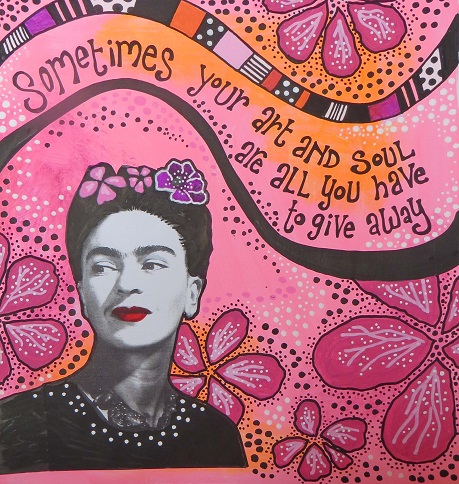 Sometimes your art AND SOUL
are all you have
to give away